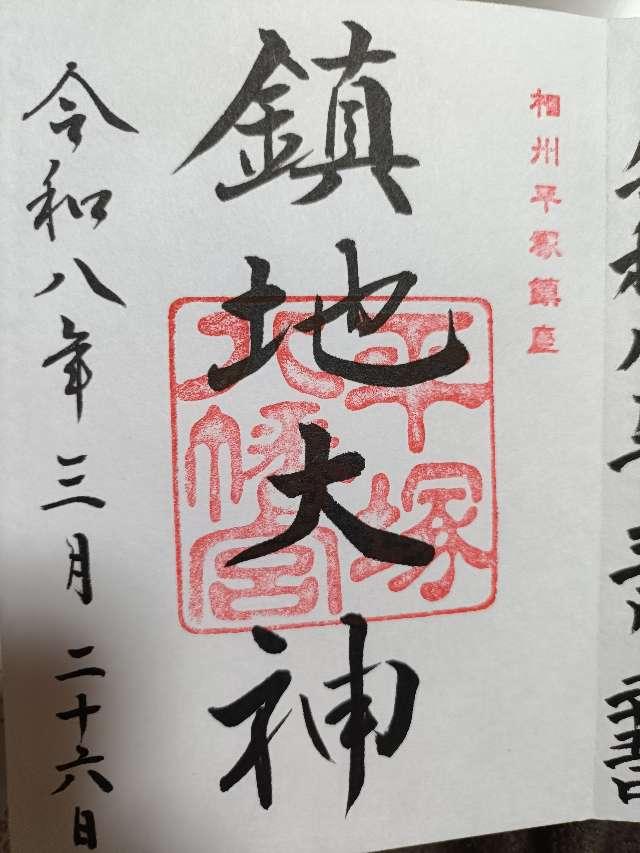 相州平塚鎮座
鎮地大神
平塚
八幡宮
令和八年三月二十六日